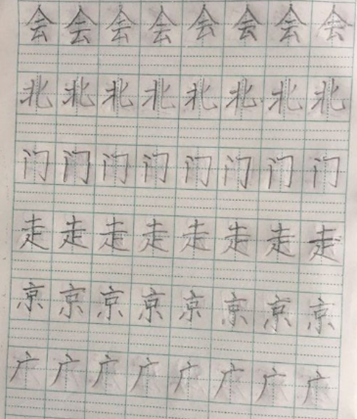 会会会会会会会会
北北北北北北北北
门门门门门门门门
走走走走走走走走
京京京京京京京京
广广广广广广广广